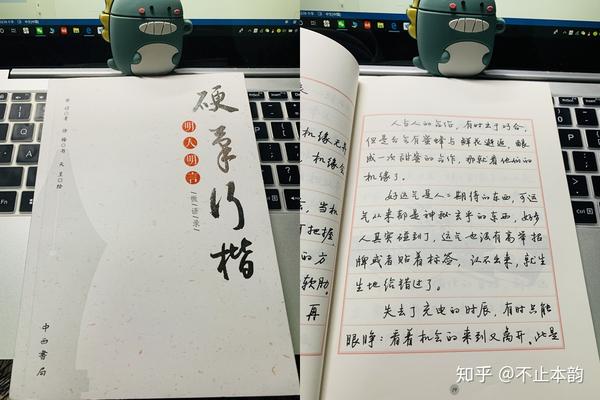 硬笔行楷
明人明言
微语录
中西书局
机缘
机缘会
当机
把握
的方
软肋。
再
人与人的合作,有时出于巧合,
但是否有蜜蜂与鲜花邂逅,酿
成一次甜蜜的合作,那就看他们的
机缘了。
好运气是人々期待的东西,可运
气从来都是神秘玄乎的东西,好多
人其实碰到了,运气也没有高举招
牌或者贴着标签,认不出来,就生
生地给错过了。
失去了充电的时辰,有时只能
眼睁々看着机会的来到又离开。此是
知乎 @不止本韵